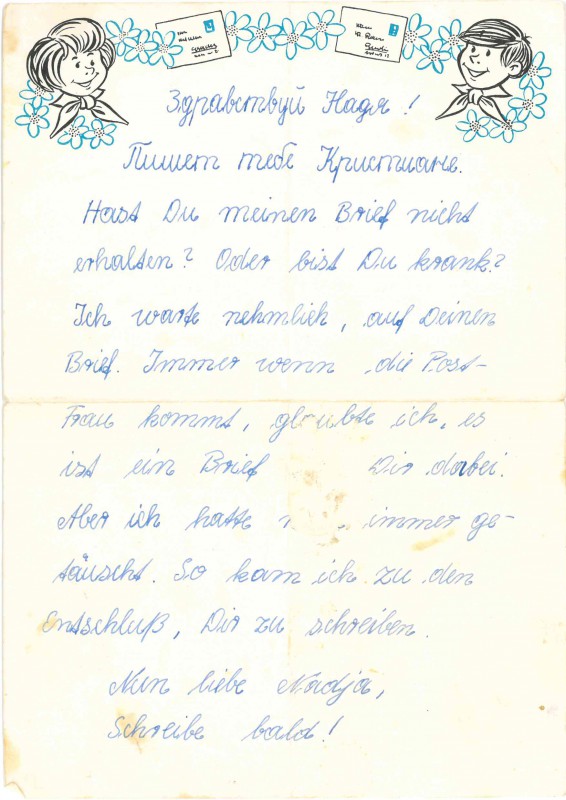 Здравствуй Надя!
Пишет тебе Кристиане.
Hast Du meinen Brief nicht
erhalten? Oder bist Du krank?
Ich warte nehmlich, auf Deinen
Brief. Immer wenn die Post-
Frau kommt, glaubte ich, es
ist ein Brief Dir dabei.
Aber ich hatte immer ge-
täuscht. So kam ich zu den
Entschluß, Dir zu schreiben.
Nun liebe Nadja,
Schreibe bald!